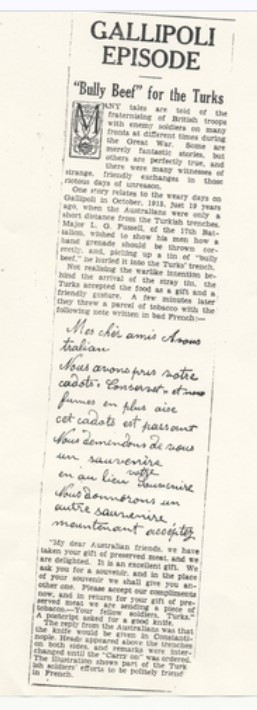 GALLIPOLI
EPISODE
"Bully Beef" for the Turks
MANY tales are told of the
fraternising of British troops
with enemy soldiers on many
fronts at different times during
the Great War. Some are
merely fantastic stories, but
others are perfectly true, and
there were many witnesses of
strange, friendly exchanges in those
riotous days of unreason.
One story relates to the weary days on
Gallipoli in October, 1915, just 19 years
ago, when the Australians were only a
short distance from the Turkish trenches.
Major L. G. Fussell, of the 17th Bat-
talion, wished to show his men how a
hand grenade should be thrown cor-
rectly, and, picking up a tin of "bully
beef," he hurled it into the Turks' trench.
Not realising the warlike intention be-
hind the arrival of the stray tin, the
Turks accepted the food as a gift and a
friendly gesture. A few minutes later
they threw a parcel of tobacco with the
following note written in bad French:—
Mes cher amis Avous
tralian
Nous avons pris votre
cadots "Conservet" et nous
fumes en plus aise
cet cadots est passant
Nous demendons de vous
un sauvenire
en au lieu votre souvenire
Nous donnorons un
autre sauvenire
maintenant accéptez
"My dear Australian friends, we have
taken your gift of preserved meat, and we
are delighted. It is an excellent gift. We
ask you for a souvenir, and in the place
of your souvenir we shall give you an-
other one. Please accept our compliments
now, and in return for your gift of pre-
served meat we are sending a piece of
tobacco.—Your fellow soldiers, Turks."
A postscript asked for a good knife.
The reply from the Australians was that
the knife would be given in Constanti-
nople. Heads appeared above the trenches
on both sides, and remarks were inter-
changed until the "Carry on" was ordered.
The illustration shows part of the Turk-
ish soldiers' efforts to be politely friendly
in French.